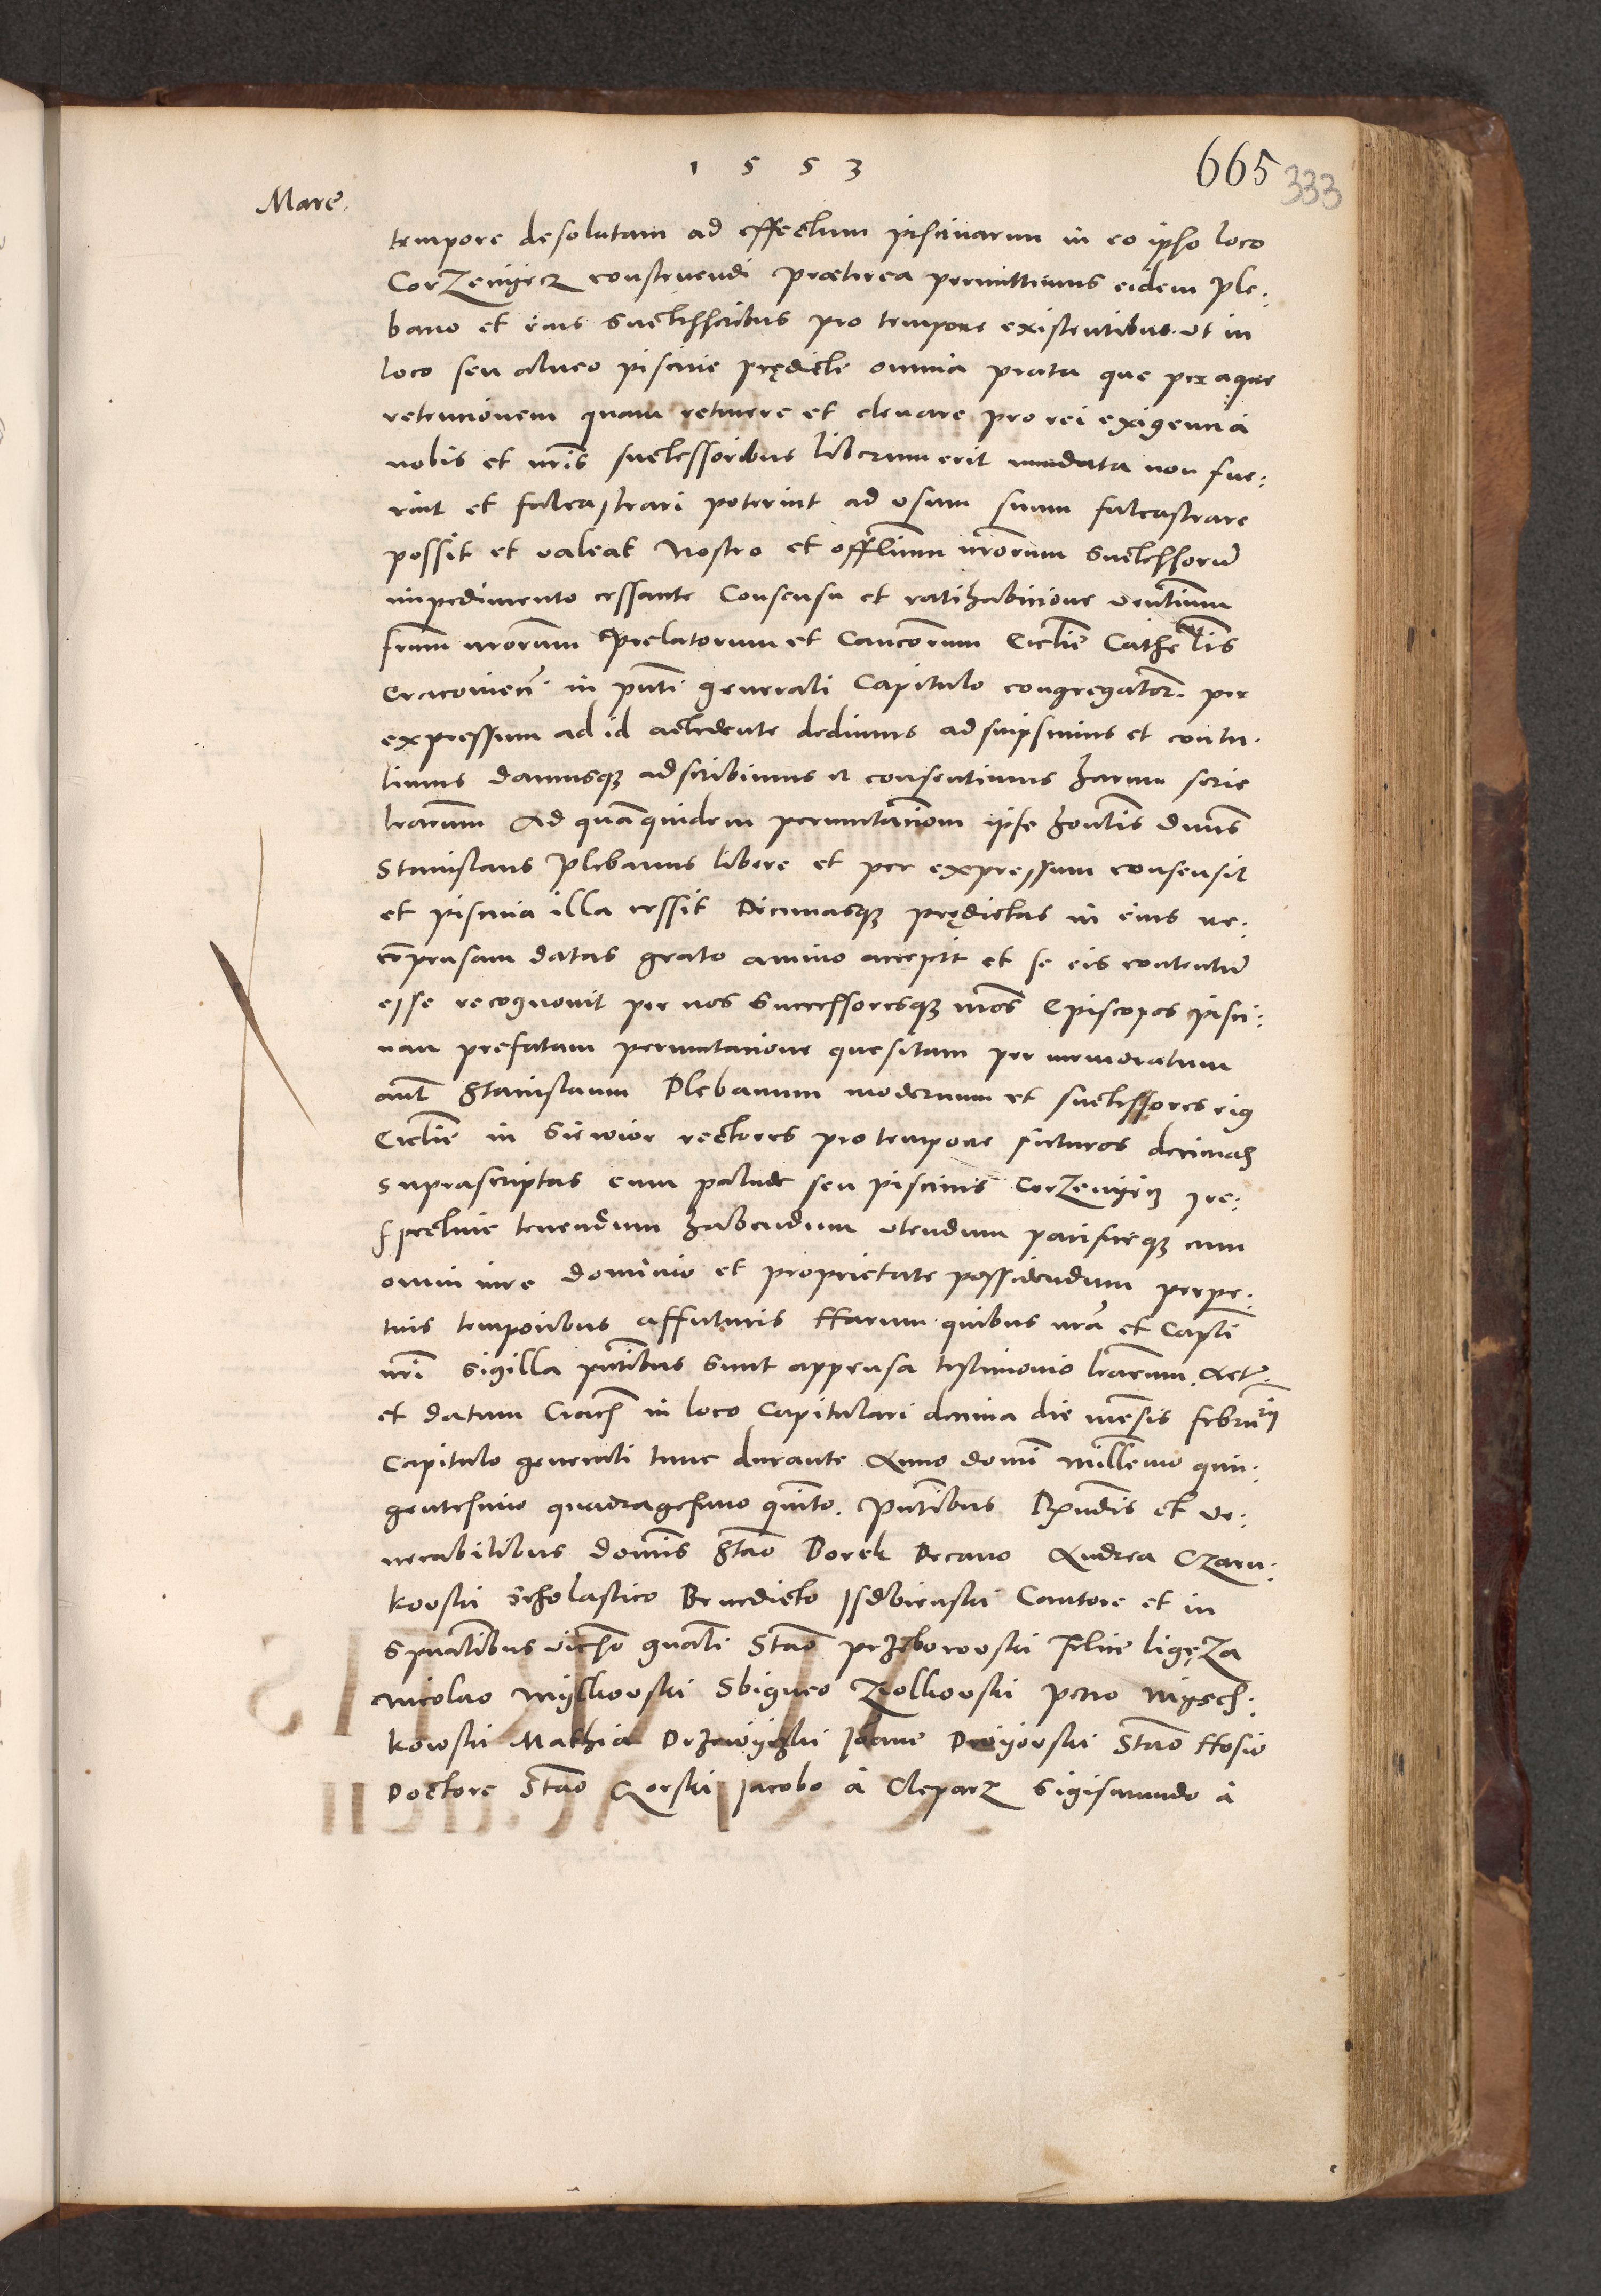 1553
665
333
Marc.
tempore desolutam ad effectum piscinarum in eo ipso loco
CorZenijecz construendi Præterea permittimus eidem Ple:
bano et eius Successoribus pro tempore existentibus. Vt in
loco seu alueo piscine prędicte omnia prata que per aque
retencionem quam retinere et eleuare pro rei exigencia
nobis et nr̄is successoribus liberum erit inundata non fue:
rint et falcastrari poterint ad vsum suum falcastrare
possit et valeat Nostro et offitialium nrōrum Successorū
impedimento cessante Consensu et ratihabicione
frūm nrōrum Prelatorum et Cancorum Ecclīe Cathe lis
Cracouien̄ in pn̄ti generali Capitulo congregator. per
expressum ad id accedente dedimus adscripsimus et contu:
limus damusq; adscribimus et consentimus harum serie
lrārum Ad quam quidem permutacionem ipse hon̄lis Dn̄us
Stanislaus Plebanus libere et per expressum consensit
et piscina illa cessit Decimasq; prędictas in eius re:
cōpensam datas grato animo accepit et se eis contentū
esse recognouit per nos Successoresq; nrōs Episcopos pisci:
nan prefatam permutacione quesitam per memoratum
aut Stanislaum Plebanum modernum et successores eius
Ecclīe in Siewior rectores pro tempore futuros decimas
suprascriptas cum palude seu piscinis CorZenijecz
spectiue tenendum habendum vtendum pacificeq; cum
omni iure dominio et proprietate possidendum perpe:
tuis temporibus affuturis Harum quibus nrā et Capli
nrī Sigilla pn̄tibus sunt appensa testimonio lrārum. Act
et datum Crac̄ in loco Capitulari decima die mensis februarij
Capitulo generali tunc durante Anno domī millemo quin:
gentesimo quadragesimo quinto. Pn̄tibus Rx̄ndis et Ve:
nerabilibus dominis Stāo Borek Decano Andrea CZarn:
kowski Scholastico Benedicto Isdbienski Cantore et in
Spūalibus vicario gn̄ali Stāo przerbowski Felice ligęZa
Nicolao Mijskowski Sbigneo Ziolkowski Petro Mijsch:
kowski Mathia Drzewijczki Joanne Droijowski Stāo Hosio
Doctore Stāo Gorski Jacobo à CleparZ Sigismundo à